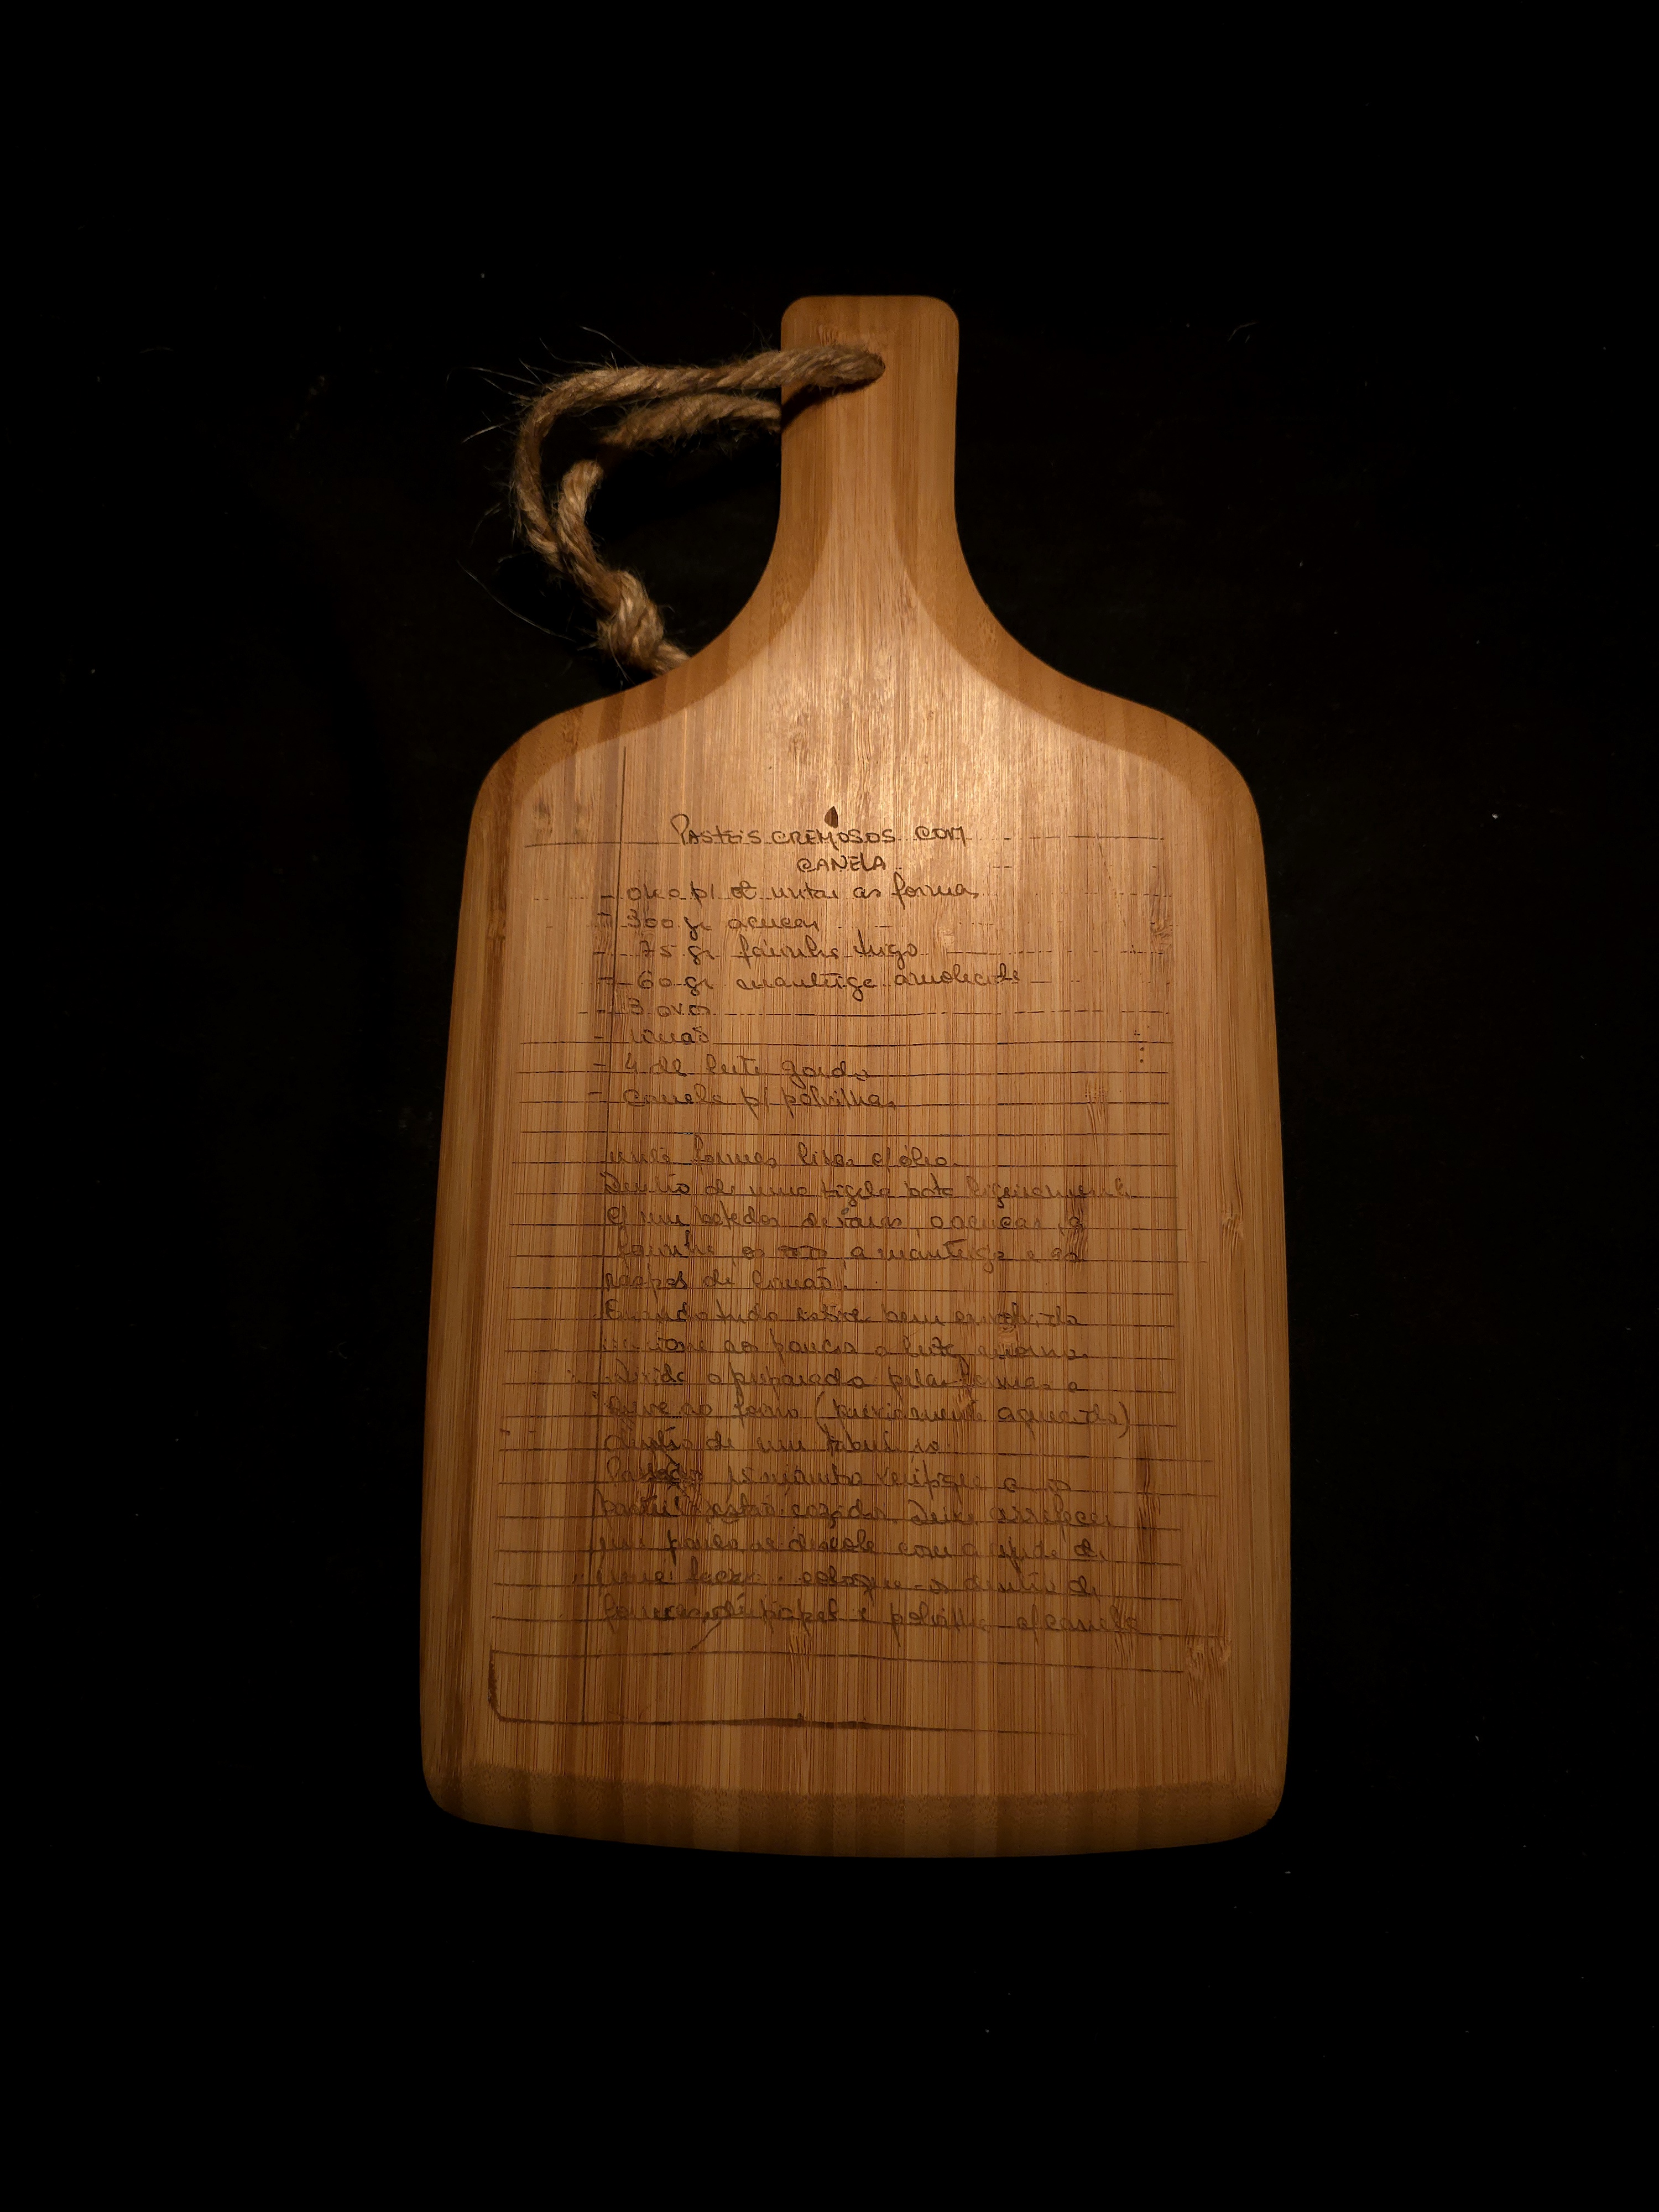 PASTEIS CREMOSOS COM
CANELA
- óleo p/ untar as formas
- 300 gr açucar
- 75 gr farinha trigo
- 60 gr manteiga amolecida
- 3 ovos
- limão
- 4 dl leite gordo
- canela p/ polvilhar
unte formas lisas c/ óleo.
Dentro de uma tigela bata ligeiramente
c/ um batedor de varas, o açucar, a
farinha, os ovos a manteiga e as
raspas de limão.
Quando tudo estiver bem envolvido
adicione aos poucos o leite morno.
Divida o preparado pelas formas e
leve ao forno (previamente aquecido)
dentro de um tabuleiro.
verifique se os
pasteis estão cozidos. Deixe arrefecer
um pouco e descole com a ajuda de
uma faca. coloque-os dentro de
formas de papel e polvilhe c/ canela.